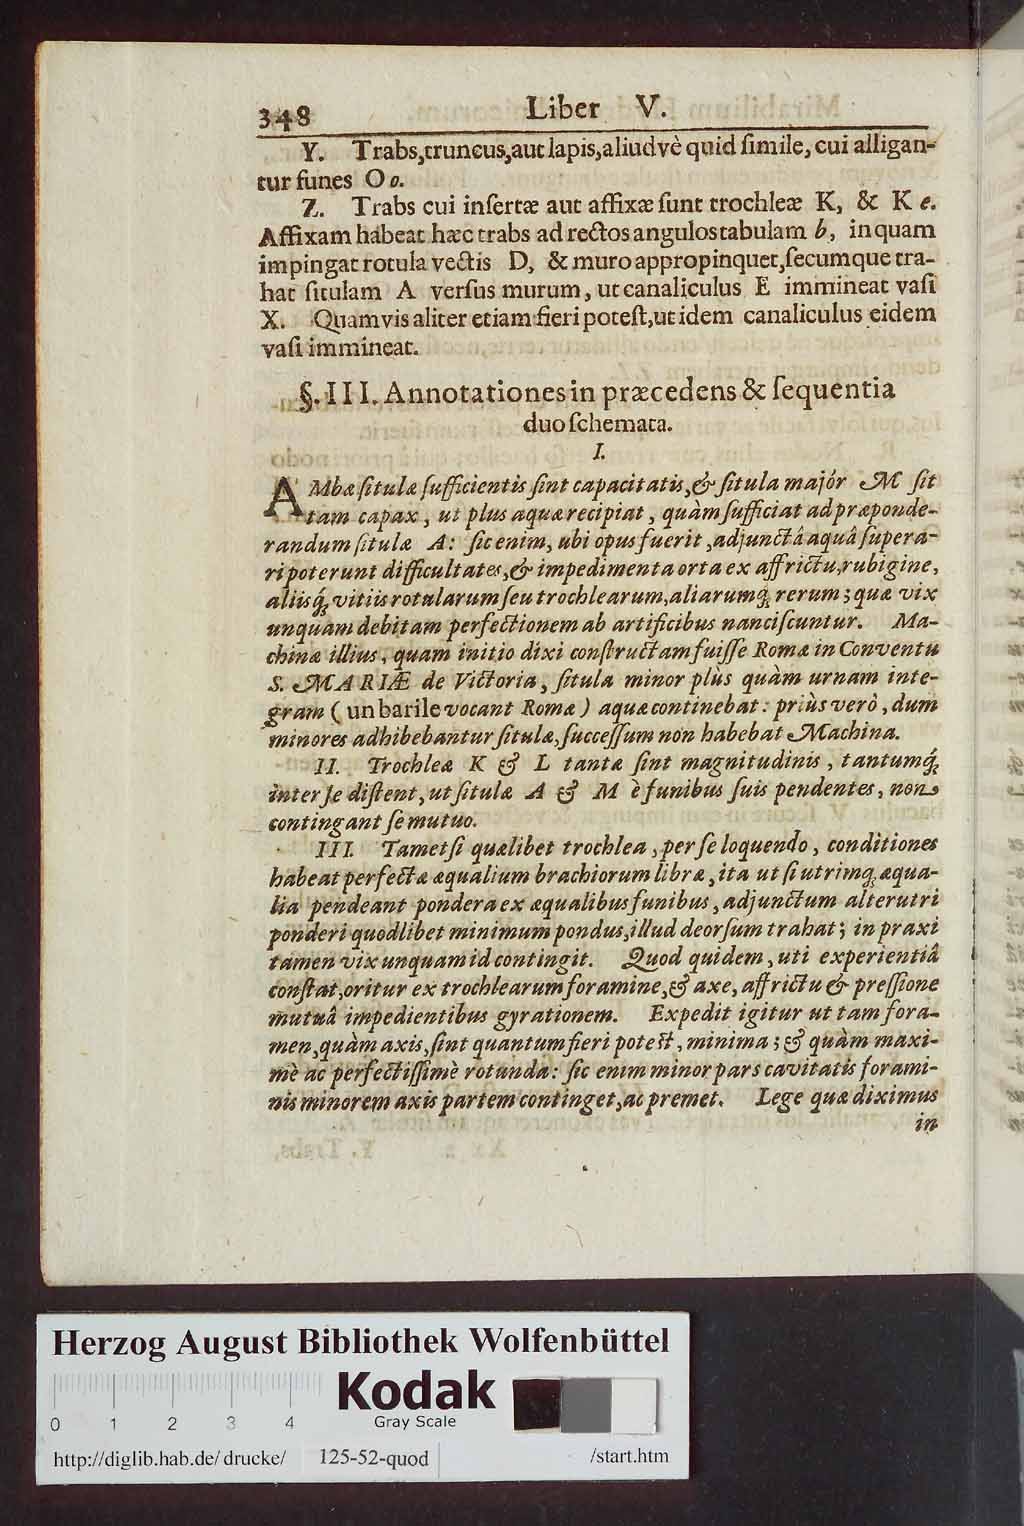 348 Liber V.
Y. Trabs, truncus, aut lapis, aliudvè quid ſimile, cui alligan-
tur funes O o.
Z. Trabs cui inſertæ aut affixæ ſunt trochleæ K, & K e.
Affixam habeat hæc trabs ad rectos angulos tabulam b, in quam
impingat rotula vectis D, & muro appropinquet, ſecumque tra-
hat ſitulam A verſus murum, ut canaliculus E immineat vaſi
X. Quamvis aliter etiam fieri poteſt, ut idem canaliculus eidem
vaſi immineat.
§. III. Annotationes in præcedens & ſequentia
duo ſchemata.
I.
AMbæ ſitulæ ſufficientis ſint capacitatis, & ſitula major M ſit
tam capax, ut plus aquæ recipiat, quàm ſufficiat ad præponde-
randum ſitulæ A: ſic enim, ubi opus fuerit, adjunctâ aquâ ſupera-
ri poterunt difficultates, & impedimenta orta ex affrictu, rubigine,
aliisq́; vitiis rotularum ſeu trochlearum, aliarumq́; rerum; quæ vix
unquam debitam perfectionem ab artificibus nanciſcuntur. Ma-
chinæ illius, quam initio dixi conſtructam fuiſſe Romæ in Conventu
S. MARIÆ de Victoria, ſitula minor plùs quàm urnam inte-
gram ( un barile vocant Romæ ) aquæ continebat: priùs verò, dum
minores adhibebantur ſitulæ, ſucceſſum non habebat Machina.
II. Trochleæ K & L tantæ ſint magnitudinis, tantumq́;
inter ſe diſtent, ut ſitulæ A & M è funibus ſuis pendentes, non
contingant ſe mutuo.
III. Tametſi quælibet trochlea, per ſe loquendo, conditiones
habeat perfectæ æqualium brachiorum libræ, ita ut ſi utrimq; æqua-
lia pendeant pondera ex æqualibus funibus, adjunctum alterutri
ponderi quodlibet minimum pondus, illud deorſum trahat; in praxi
tamen vix unquam id contingit. Quod quidem, uti experientiâ
conſtat, oritur ex trochlearum foramine, & axe, affrictu & preſſione
mutuâ impedientibus gyrationem. Expedit igitur ut tam fora-
men, quàm axis, ſint quantum fieri poteſt, minima; & quàm maxi-
mè ac perfectiſſimè rotunda: ſic enim minor pars cavitatis forami-
nis minorem axis partem continget, ac premet. Lege quæ diximus
in
Herzog August Bibliothek Wolfenbüttel
Kodak
0 1 2 3 4 Gray Scale
http://diglib.hab.de/drucke/ 125-52-quod /start.htm